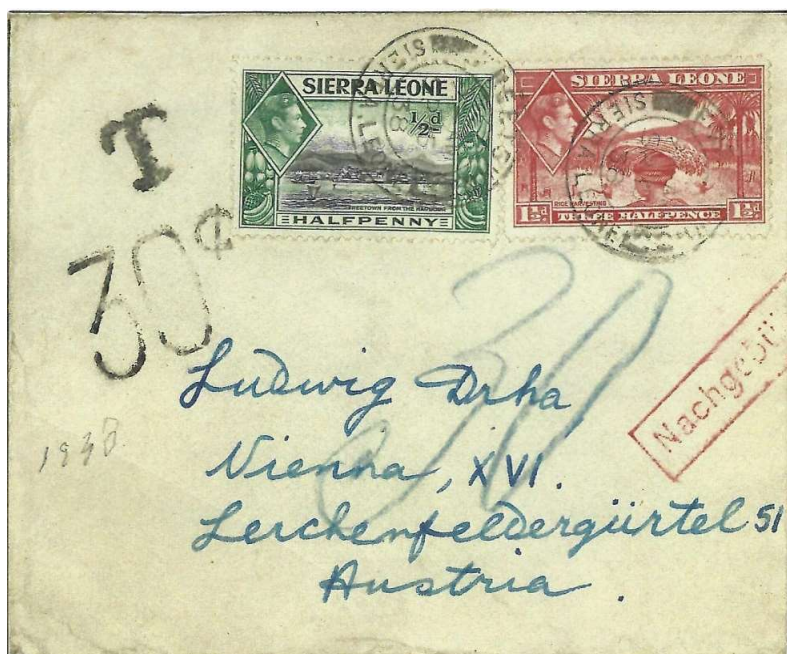 SIERRA LEONE
½d
FREETOWN FROM THE HARBOUR
HALFPENNY
SIERRA LEONE
RICE HARVESTING
1½d
THREE HALFPENCE
1½d
SIERRA LEONE
38
SIERRA LEONE
T
30¢
30
Nachgebü
1938
Ludwig Drha
Vienna, XVI.
Lerchenfeldergürtel 51
Austria.